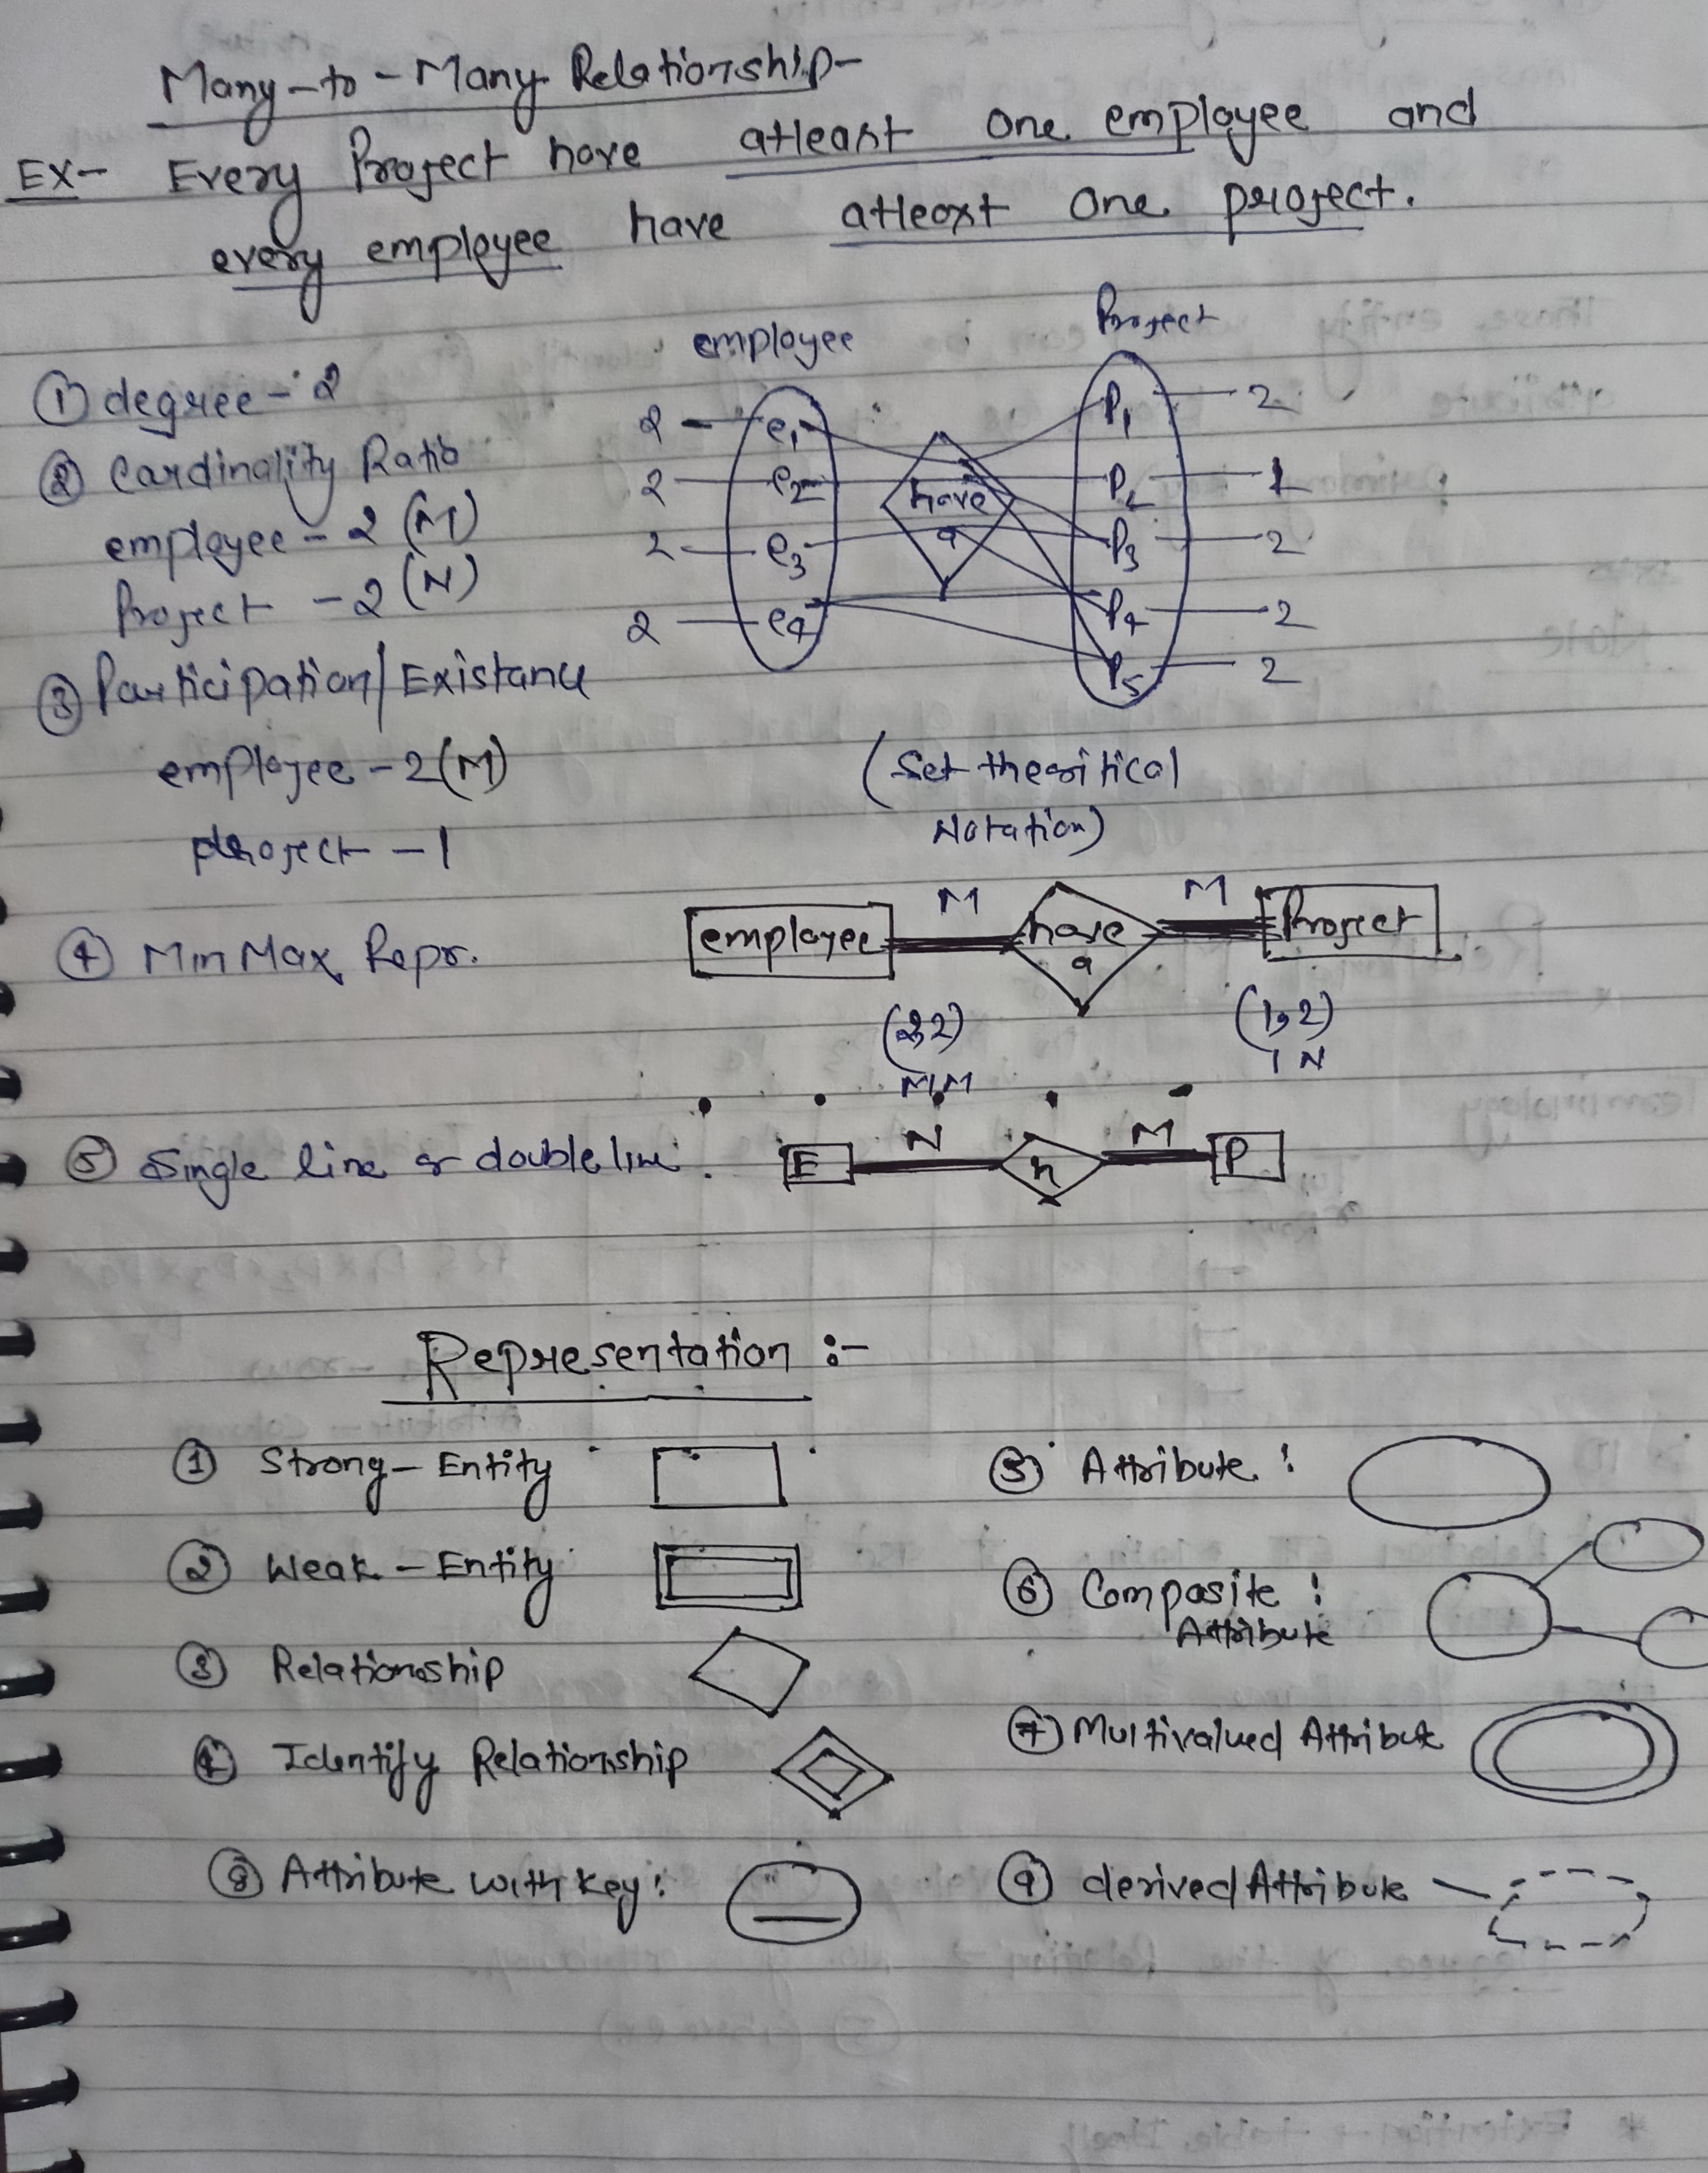 Many-to-Many Relationship-
EX- Every Project have atleast one employee and
every employee have atleast one project.
employee Project
① degree - 2
② Cardinality Ratio
employee - 2 (M)
Project - 2 (N)
③ Participation/Existance
employee - 2(M)
project - 1
2 e1 P1 2
2 e2 P2 1
2 e3 P3 2
2 e4 P4 2
P5 2
have
a
(Set theoritical
Notation)
④ Min Max Repr.
employee M have a M Project
(2,2) (1,2)
M,M 1 N
⑤ Single line or double line.
E N h M P
Representation :-
① Strong-Entity
② Weak-Entity
③ Relationship
④ Identify Relationship
⑤ Attribute :
⑥ Composite :
Attribute
⑦ Multivalued Attribute
⑧ Attribute with key:
⑨ derived Attribute